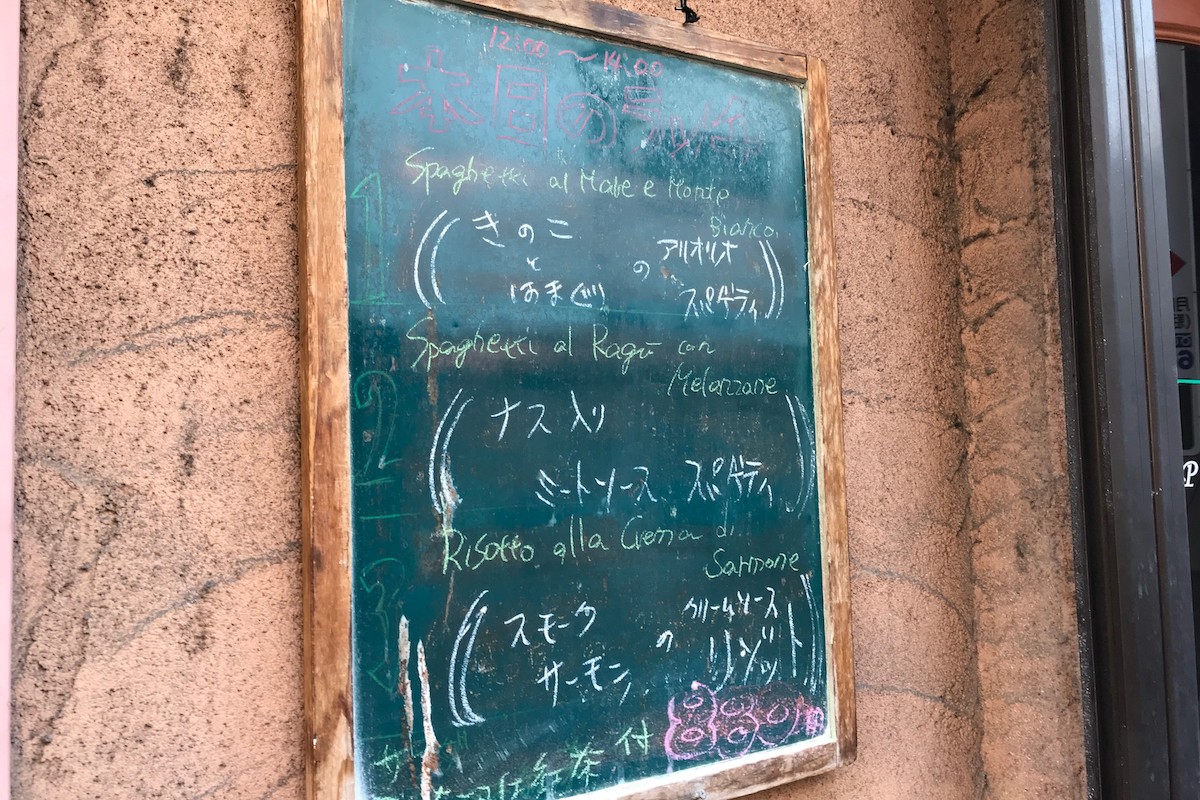 12:00~14:00
本日のランチ
1
Spaghetti al Mare e Monte
Bianco
きのこ
と
はまぐり
の
アーリオオーリオ
スパゲティ
2
Spaghetti al Ragù con
Melanzane
ナス入り
ミートソース スパゲティ
3
Risotto alla Crema di
Sarmone
スモーク
サーモン
の
クリームソース
リゾット
付